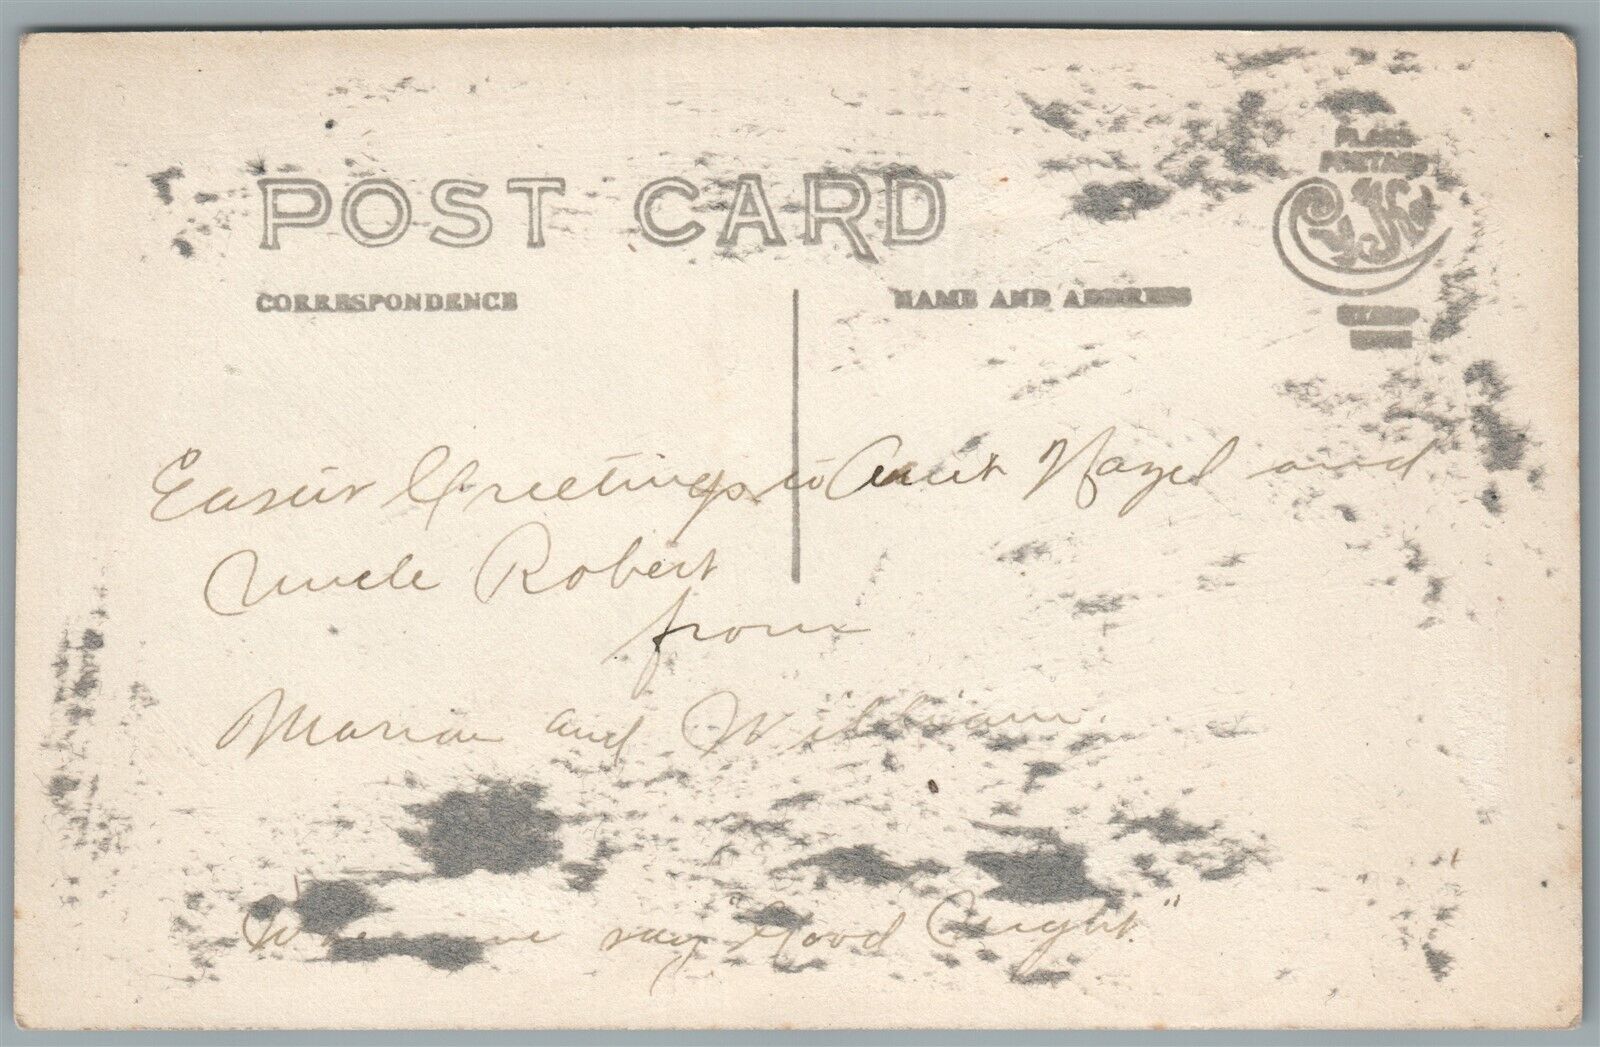 POST CARD
PLACE
POSTAGE
STAMP
HERE
CORRESPONDENCE
NAME AND ADDRESS
Easter Greetings to Aunt Hazel and
Uncle Robert
from
Marian and William.
When we say "Good Night."